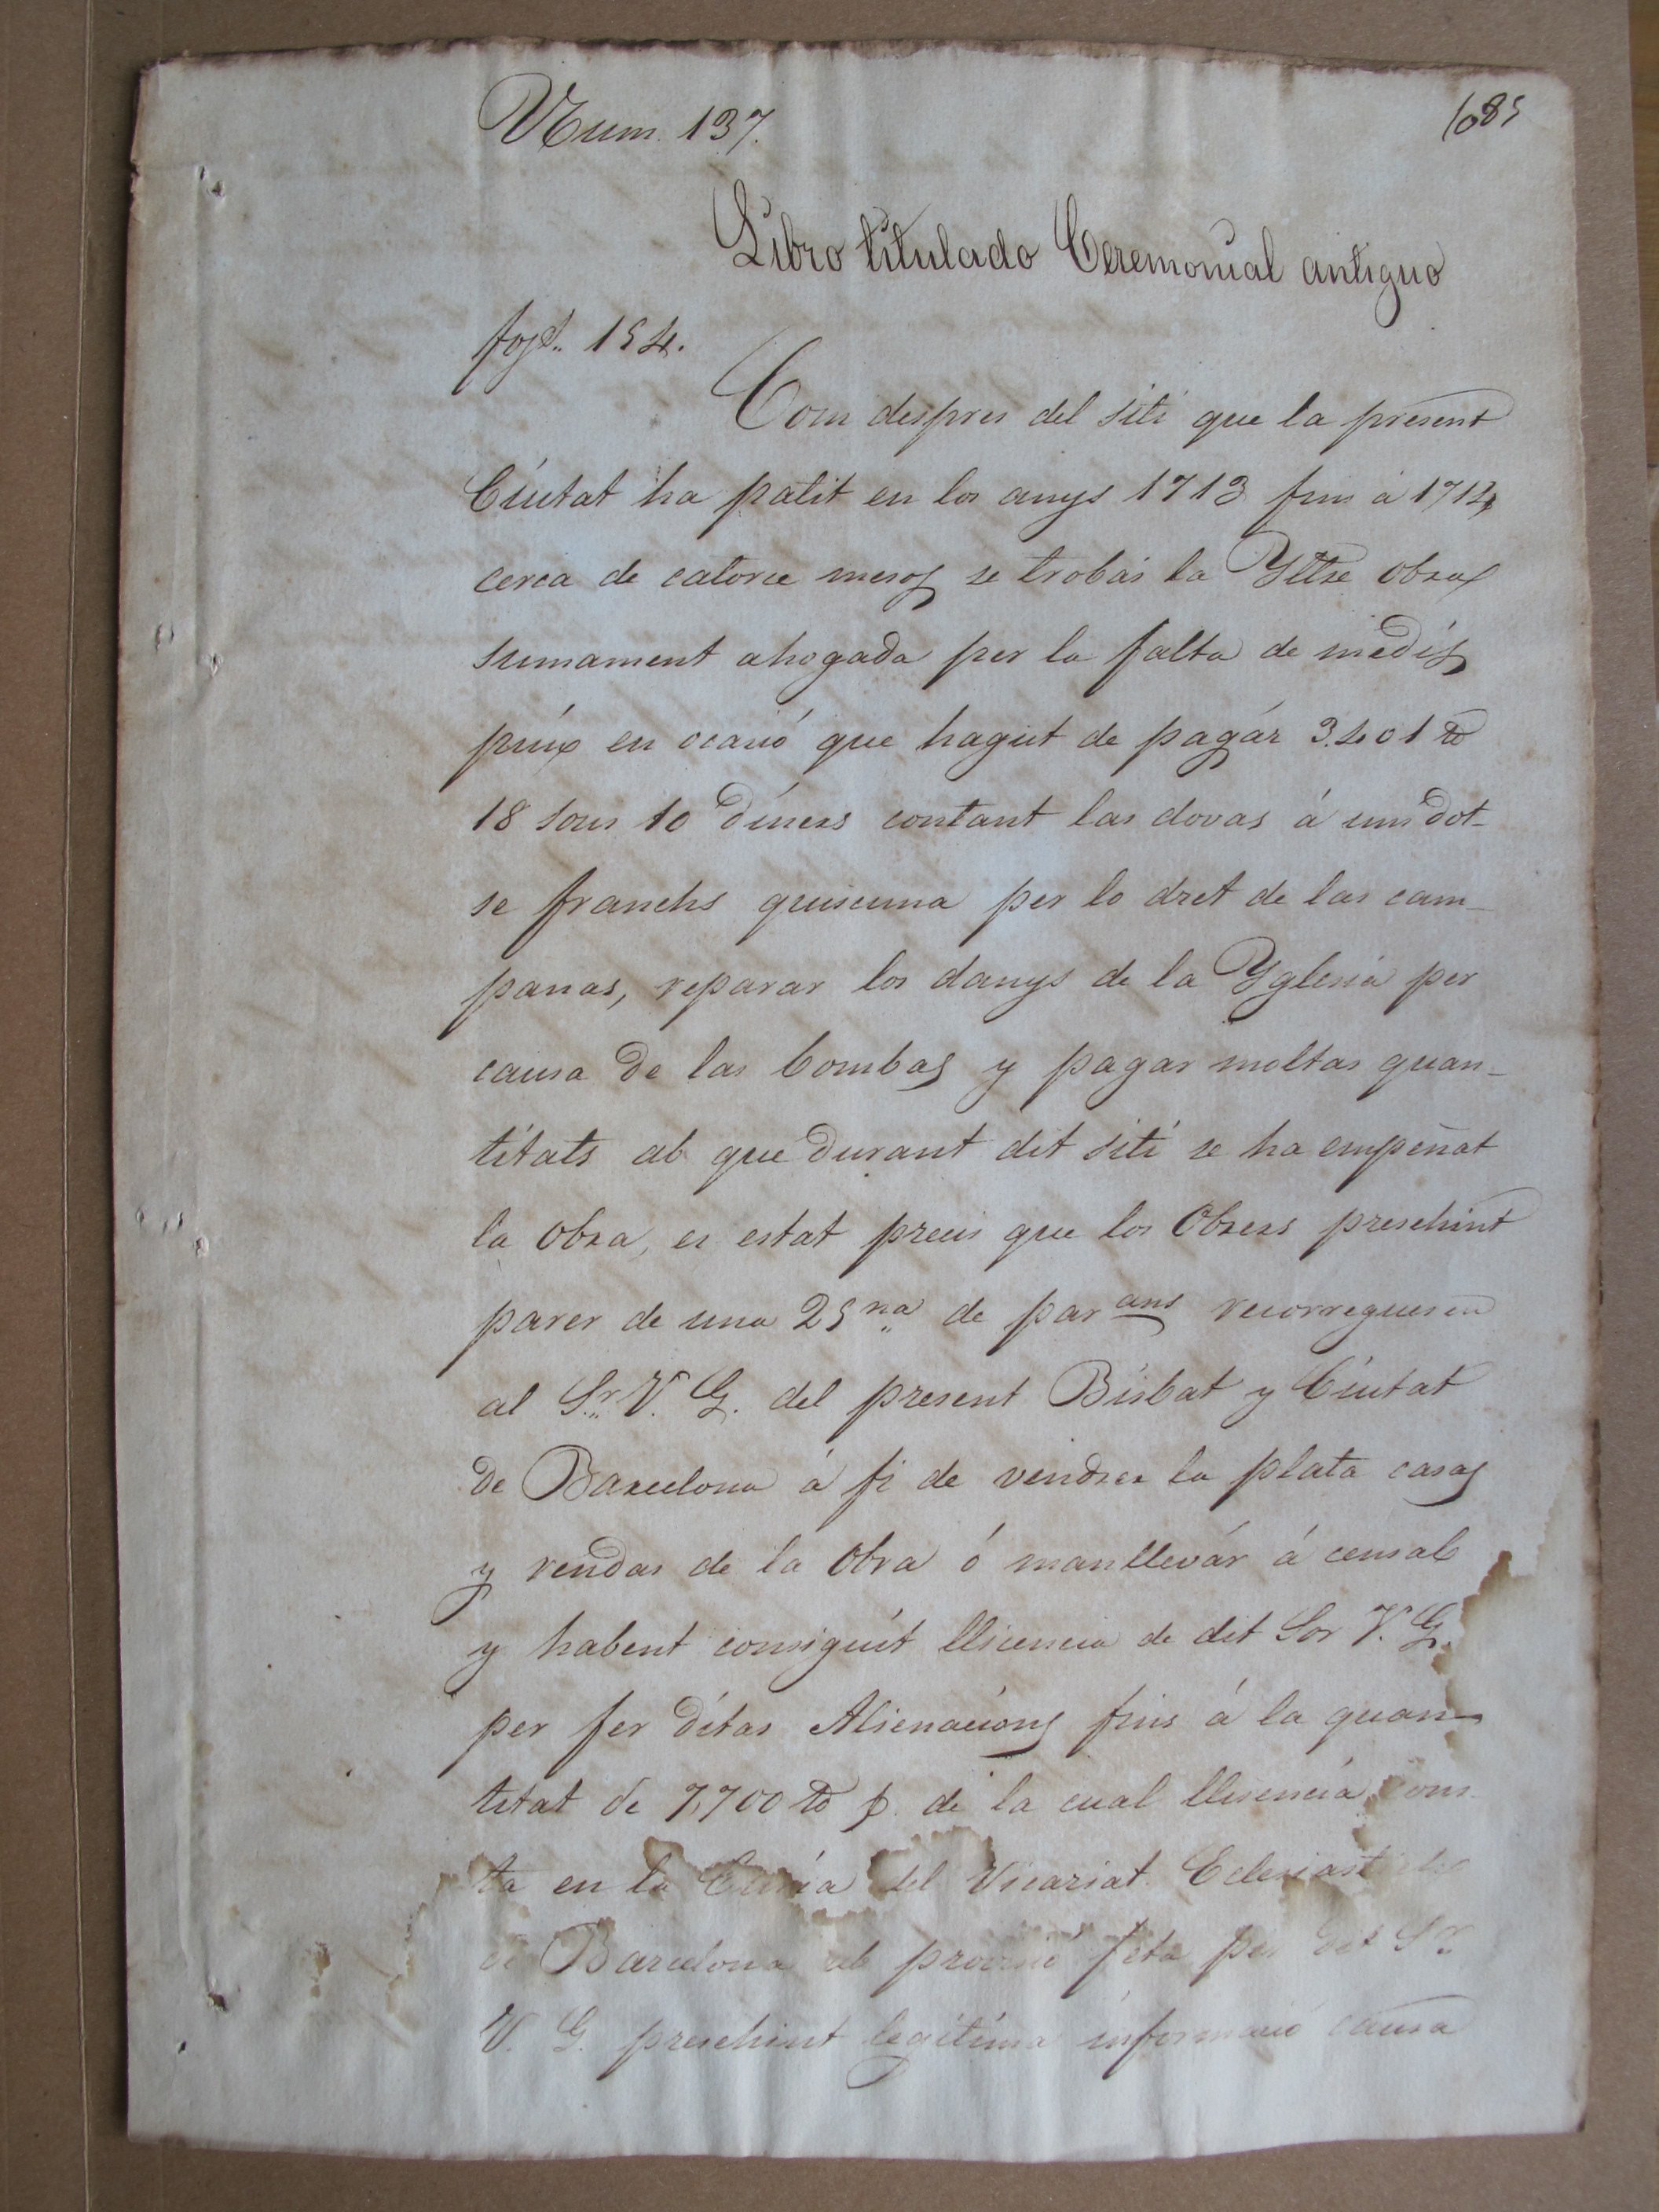 Num. 137.
1685
Libro titulado Ceremonial antiguo
154.
Com despres del siti que la present
Ciutat ha patit en los anys 1713 fins á 1714
cerca de catorce mesos se trobás la Yltre obra
sumament ahogada per la falta de medis
puix en ocasió que hagut de pagár 3.401 ₶
18 sous 10 diners contant las dovas á un dot-
se franchs quiscuna per lo dret de las cam-
panas, reparar los danys de la Yglesia per
causa de las bombas y pagar moltas quan-
titats ab que durant dit siti se ha empeñat
la obra, es estat precis que los Obrers preschint
parer de una 25na de parans recorreguesen
al Sr. V. G. del present Bisbat y Ciutat
de Barcelona á fi de vendrer la plata casas
y rendas de la Obra ó manllevár á censal
y habent consiguit llicencia de dit Sor V. G.
per fer ditas Alienacions fins á la quan-
titat de 7,700 ₶ p. de la cual llisencia cons
ta en la Curia del Vicariat Eclesiastich
de Barcelona ab provisió feta per dit Sr.
V. G. preschint legitima informació causa